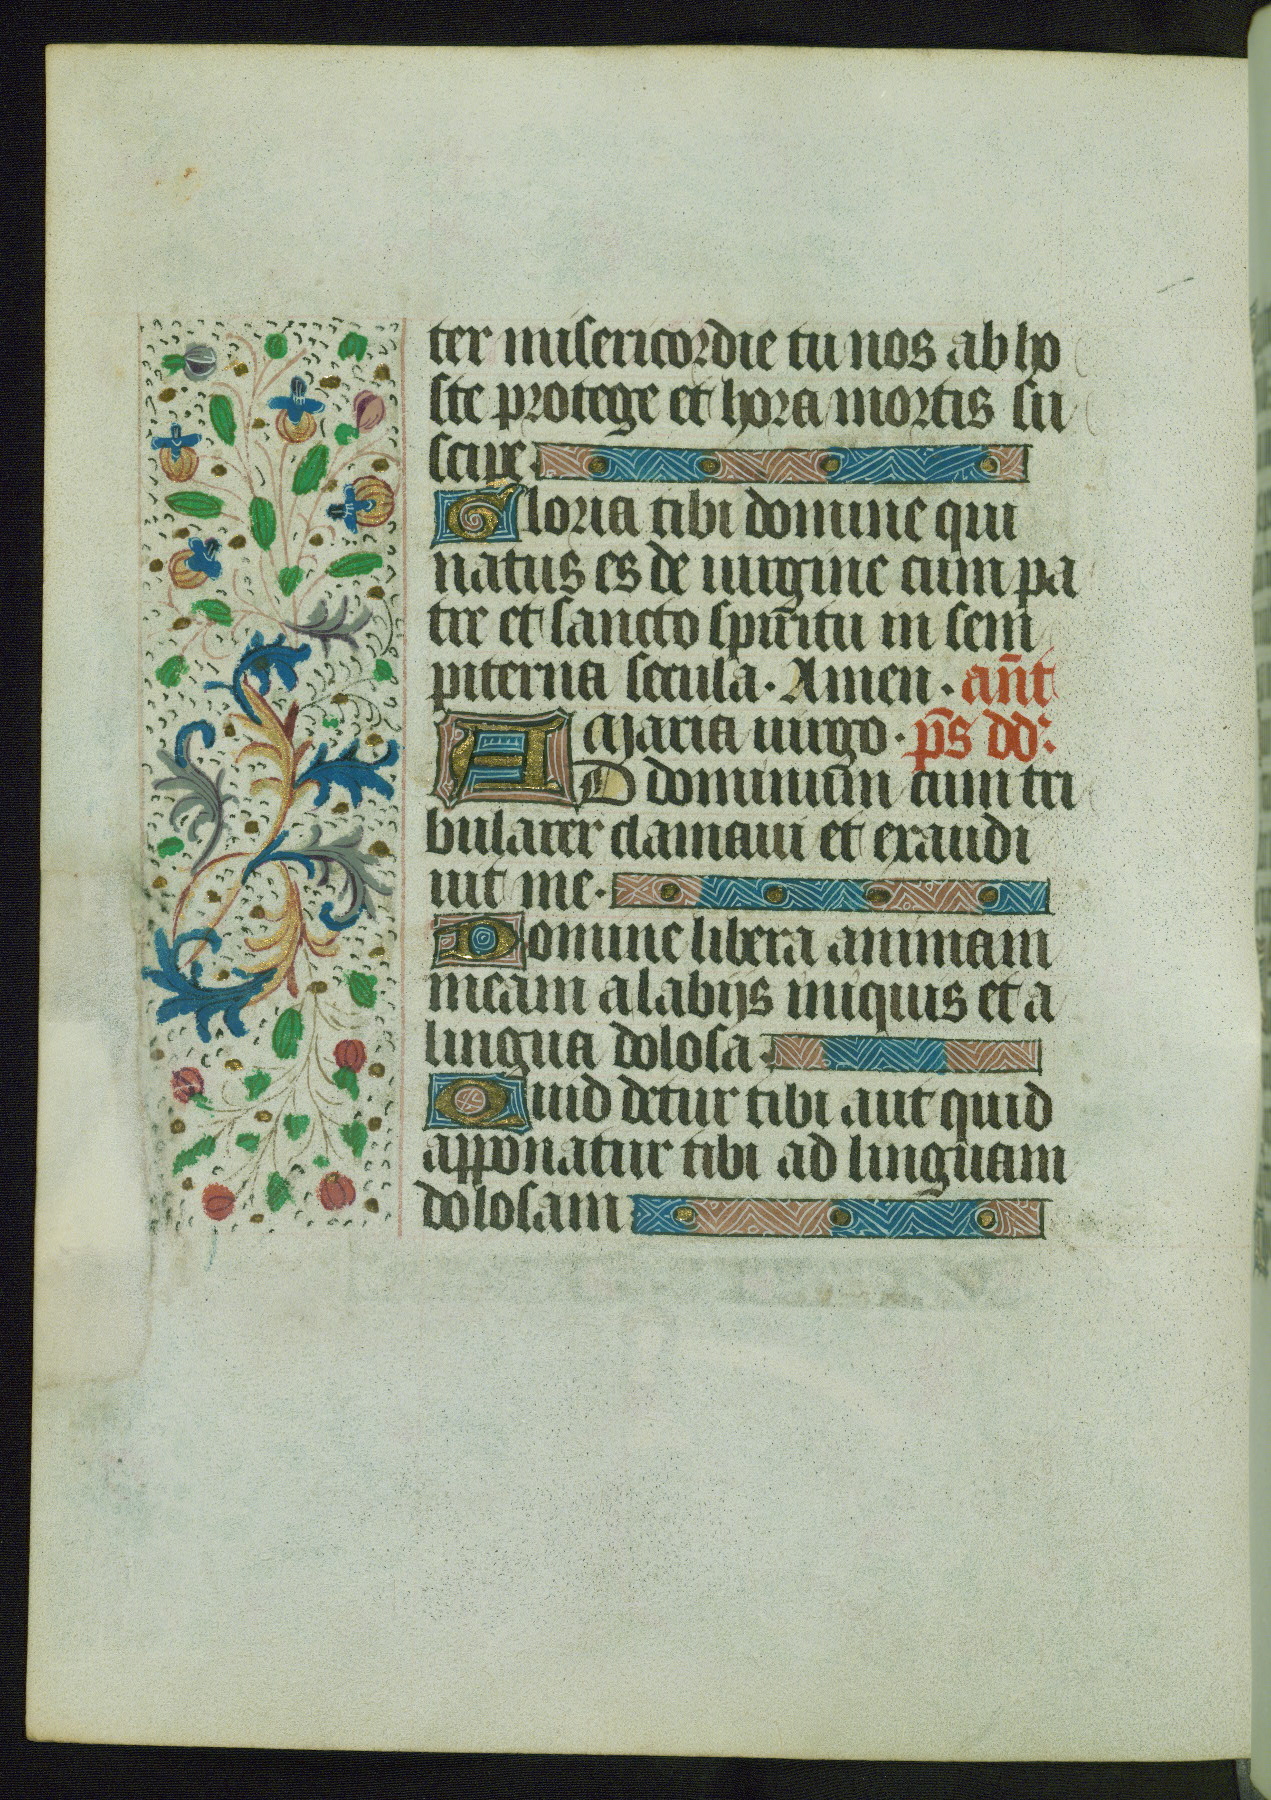 ter misericordie tu nos ab ho
ste protege et hora mortis su
scipe.
Gloria tibi domine qui
natus es de uirgine cum pa
tre et sancto sp̄iritu in sem
piterna secula. Amen. an̄t
Maria uirgo. p̄s dd.
AD dominum cum tri
bularer clamaui et exaudi
uit me.
Domine libera animam
meam a labijs iniquis et a
lingua dolosa.
Quid detur tibi aut quid
apponatur tibi ad linguam
dolosam